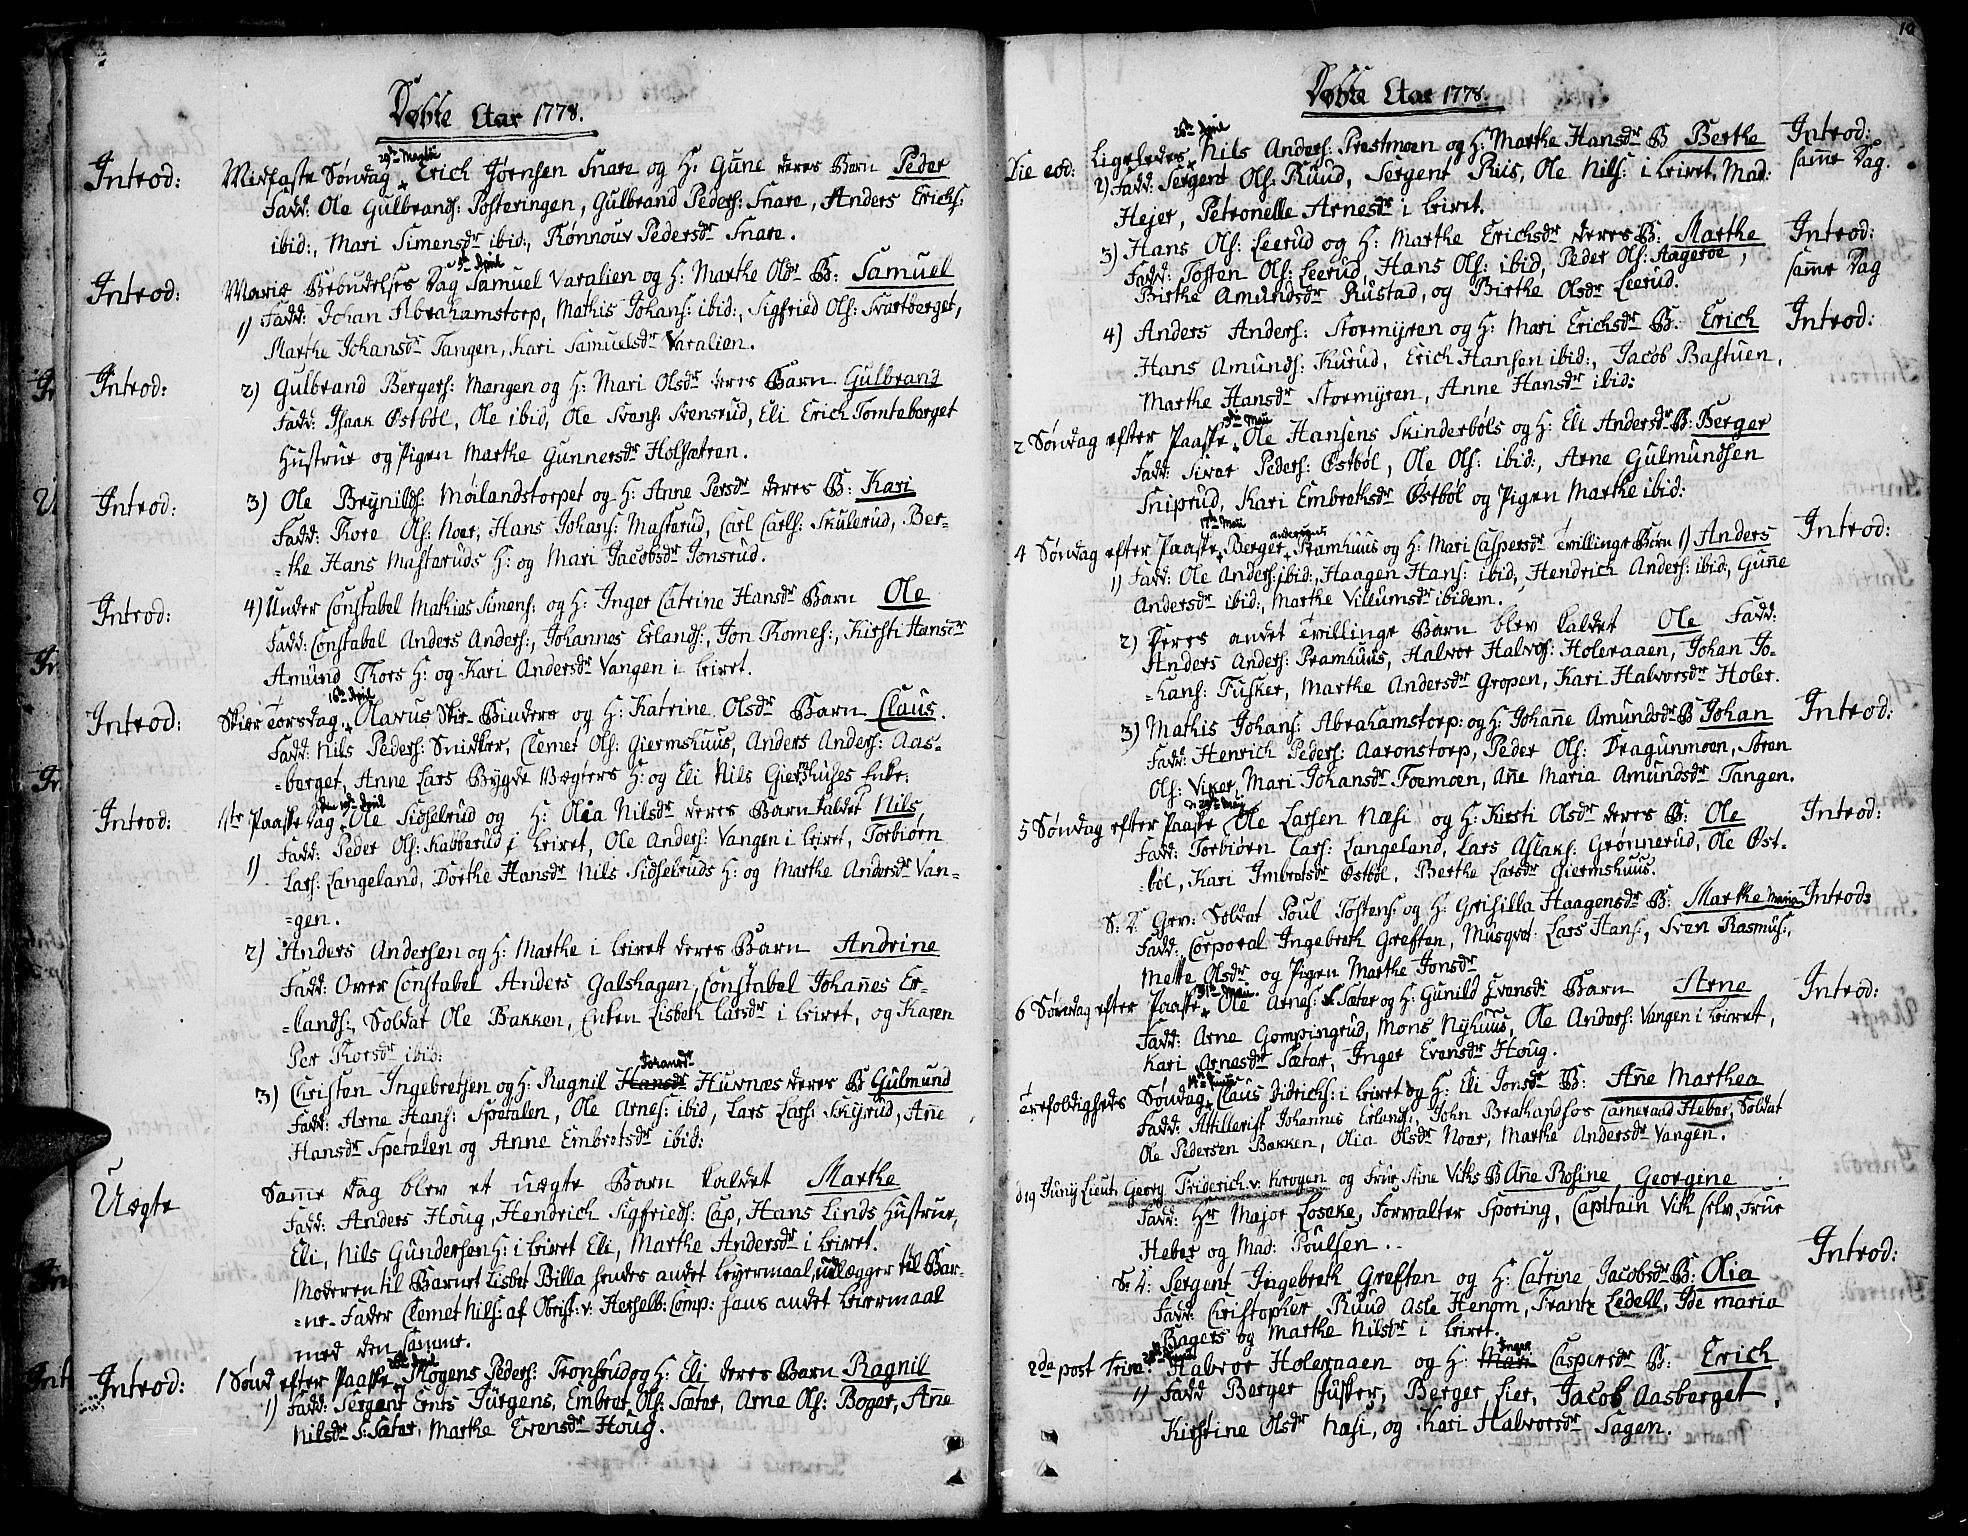 Døbte Aar 1778.
Introd: Midfaste Søndag 29de Martii Erich Jørensen Snare og H: Gune deres Barn Peder
Fadd: Ole Gulbrands: Posteringen, Gulbrand Peders: Snare, Anders Erichs:
ibid:, Mari Simensdr ibid:, Rønnouv Pedersdr Snare.
Introd: Mariæ Bebudelses Dag 5te April Samuel Varalien og H: Marthe Olsdr B: Samuel
1) Fadd: Johan Abrahamstorp, Mathis Johans: ibid:, Sigfried Ols: Svartberget,
Marthe Johansdr Tangen, Kari Samuelsdr Varalien.
Introd: 2) Gulbrand Bergers: Mangen og H: Mari Olsdr deres Barn Gulbrand
Fadd: Isaak Østbøl, Ole ibid, Ole Svens: Svensrud, Eli Erich Tomteberget
Hustrue og Pigen Marthe Gunnersdr Holsætren.
Introd: 3) Ole Brynilds: Møilandstorpet og H: Anne Persdr deres B: Kari
Fadd: Tore Ols: Noer, Hans Johans: Mastarud, Carl Carls: Skulerud, Ber-
=the Hans Mastaruds H: og Mari Jacobsdr Jonsrud.
Introd: 4) Under Constabel Mathias Simens: og H: Inger Catrine Hansdr Barn Ole
Fadd: Constabel Anders Anders:, Johannes Erlands:, Jon Thomes:, Kirsti Hansdr
Amund Thors H: og Kari Andersdr Vangen i Leiret.
Introd: Skiær Torsdag 16de April Olavus Skie-Binders og H: Katrine Olsdr Barn Claus.
Fadd: Nils Peders: Snidker, Clemet Ols: Giermshuus, Anders Anders: Aas-
=berget, Anne Lars Bygde Vægters H: og Eli Nils Giermshuses Enke.
Introd: 1te Paaske Dag den 19de April Ole Sidselrud og H: Olea Nilsdr deres Barn kaldet Nils
1) Fadd: Peder Ols: Kabberud i Leiret, Ole Anders: Vangen i Leiret, Torbiørn
Lars: Langeland, Dorthe Hansdr Nils Sidselruds H: og Marthe Andersdr Van-
=gen.
2) Anders Andersen og H: Marthe i Leiret deres Barn Andrine
Fadd: Over Constabel Anders Galshagen, Constabel Johañes Er-
=lands:, Soldat Ole Bakken, Enken Lisbeth Larsdr i Leiret, og Karen
Per Thorsdr ibid:
3) Christen Ingebretsen og H: Ragnil Hansdr Huvnæs deres B Gulmund
Fadd: Arne Hans: Spetalen, Ole Arnes: ibid, Lars Lars: Skyrud, Añe
Hansdr Spetalen og Anne Embretsdr ibid:
Uægte Samme Dag blev et uægte Barn kaldet Marthe
Fadd: Anders Houg, Hendrich Sigfrieds: Cap, Hans Linds Hustrue,
Eli, Nils Gundersen H: i Leiret Eli, Marthe Andersdr i Leiret.
Moderen til Barnet Lisbet Billa hendes andet Leyermaal, udlægger til Bar-
=ne-Fader Clemet Nils: af Obrist: v: Hesselb: Comp: hans andet Leiermaal
med den samme.
Introd: 1 Sønd. efter Paaske 26de April Mogens Peders: Tronsrud og H: Eli deres Barn Ragnil
1) Fadd: Sergent Ernts Jürgens, Embret Ols: Sætar, Arne Ols: Boger, Añe
Nilsdr S: Sætar, Marthe Evensdr Houg.
10
Døbte Aar 1778.
Die eod: Ligeledes 26de April Nils Anders: Prestmoen og H: Marthe Hansdr B Berthe Introd:
2) Fadd: Sergent Ols: Ruud, Sergent Riis, Ole Nils: i Leiret, Mad: samme Dag.
Hejer, Petronelle Arnesdr i Leiret.
3) Hans Ols: Leerud og H: Marthe Erichsdr deres B: Marthe Introd:
Fadd: Tosten Ols: Leerud, Hans Ols: ibid, Peder Ols: Aagerøe, samme Dag
Birthe Amundsdr Rustad, og Birthe Olsdr Leerud.
4) Anders Anders: Stormyren og H: Mari Erichsdr B: Erich Introd:
Hans Amunds: Kurud, Erich Hansen ibid:, Jacob Bastuen,
Marthe Hansdr Stormyren, Anne Hansdr ibid:
2 Søndag efter Paaske 3de Maii Ole Hansens Skinderbøls og H: Eli Andersdr B: Berger
Fadd: Siver Peders: Østbøl, Ole Ols: ibid:, Arne Gulmundsen
Sniprud, Kari Embrethsdr Østbøl og Pigen Marthe ibid:
4 Søndag efter Paaske 17de Maii Berger Pramhuus og H: Mari Caspersdr Tvillinge Børn 1) Anders Introd:
1) Fadd: Ole Anders: ibid:, Haagen Hans: ibid, Hendrich Anders: ibid:, Guñe
Andersdr ibid:, Marthe Villumsdr ibidem.
2) Deres andet Tvillinge Barn blev kaldet Ole Fadd:
Anders Anders: Pramhuus, Halvor Halvors: Holeraaen, Johan Jo-
=hans: Fusker, Marthe Andersdr Gropen, Kari Halvorsdr Holer.
3) Mathis Johans: Abrahamstorp: og H: Johañe Amundsdr B Johan Introd:
Fadd: Henrich Peders: Aaronstorp, Peder Ols: Dragunmoen, Søren
Ols: Viker, Mari Johansdr Foemoen, Añe Maria Amundsdr Tangen.
5 Søndag efter Paaske Ole Larsen Næsi og H: Kirsti Olsdr deres B: Ole Introd:
Fadd: Torbiørn Lars: Langeland, Lars Aslaks: Grønnerud, Ole Øst-
=bøl, Kari Imbretsdr Østbøl, Berthe Larsdr Giermshuus.
S: D: Gev: Soldat Poul Tostens: og H: Grisilla Haagensdr B: Marthe Maria Introd:
Fadd: Corporal Ingebreth Græften, Musqvet. Lars Hans:, Sven Rasmus:,
Mette Olsdr og Pigen Marthe Jonsdr
6 Søndag efter Paaske 31te Maii Ole Arnes: Sæter og H: Gunild Evensdr Barn Arne Introd:
Fadd: Arne Gompingrud, Mons Nyhuus, Ole Anders: Vangen i Leiret,
Kari Arnesdr Sætar, Inger Evensdr Houg.
Trefoldigheds Søndag 14de Junii Claus Didrichs: i Leiret og H: Eli Jonsdr B: Añe Marthea
Fadd: Attillerist Johannes Erlands:, John Brathandsfos Cameraad Heber, Soldat
Ole Pedersen Bakken, Olia Olsdr Noer, Marthe Andersdr Vangen.
d 19 Junij Lieut: Georg Friderich v: Krogen og Frue Stine Viks B Añe Rosine Georgine
Fadd: Hr Major Loseke, Forvalter Sporing, Capitain Vik selv, Frue
Heber og Mad: Poulsen.
S: D: Sergent Ingebreth Græften og H: Catrine Jacobsdr B: Olia Introd:
Fadd: Christopher Ruud, Asle Henom, Frantz Ledell, Ide maria
Bagers og Marthe Nilsdr i Leiret.
2da post Trin: Halvor Holeraaen og H: Mari Inger Caspersdr B: Erich
1) Fadd Berger Fusker, Berger Lier, Jacob Aasberget,
Kirstine Olsdr Næsi, og Kari Halvorsdr Sagen.